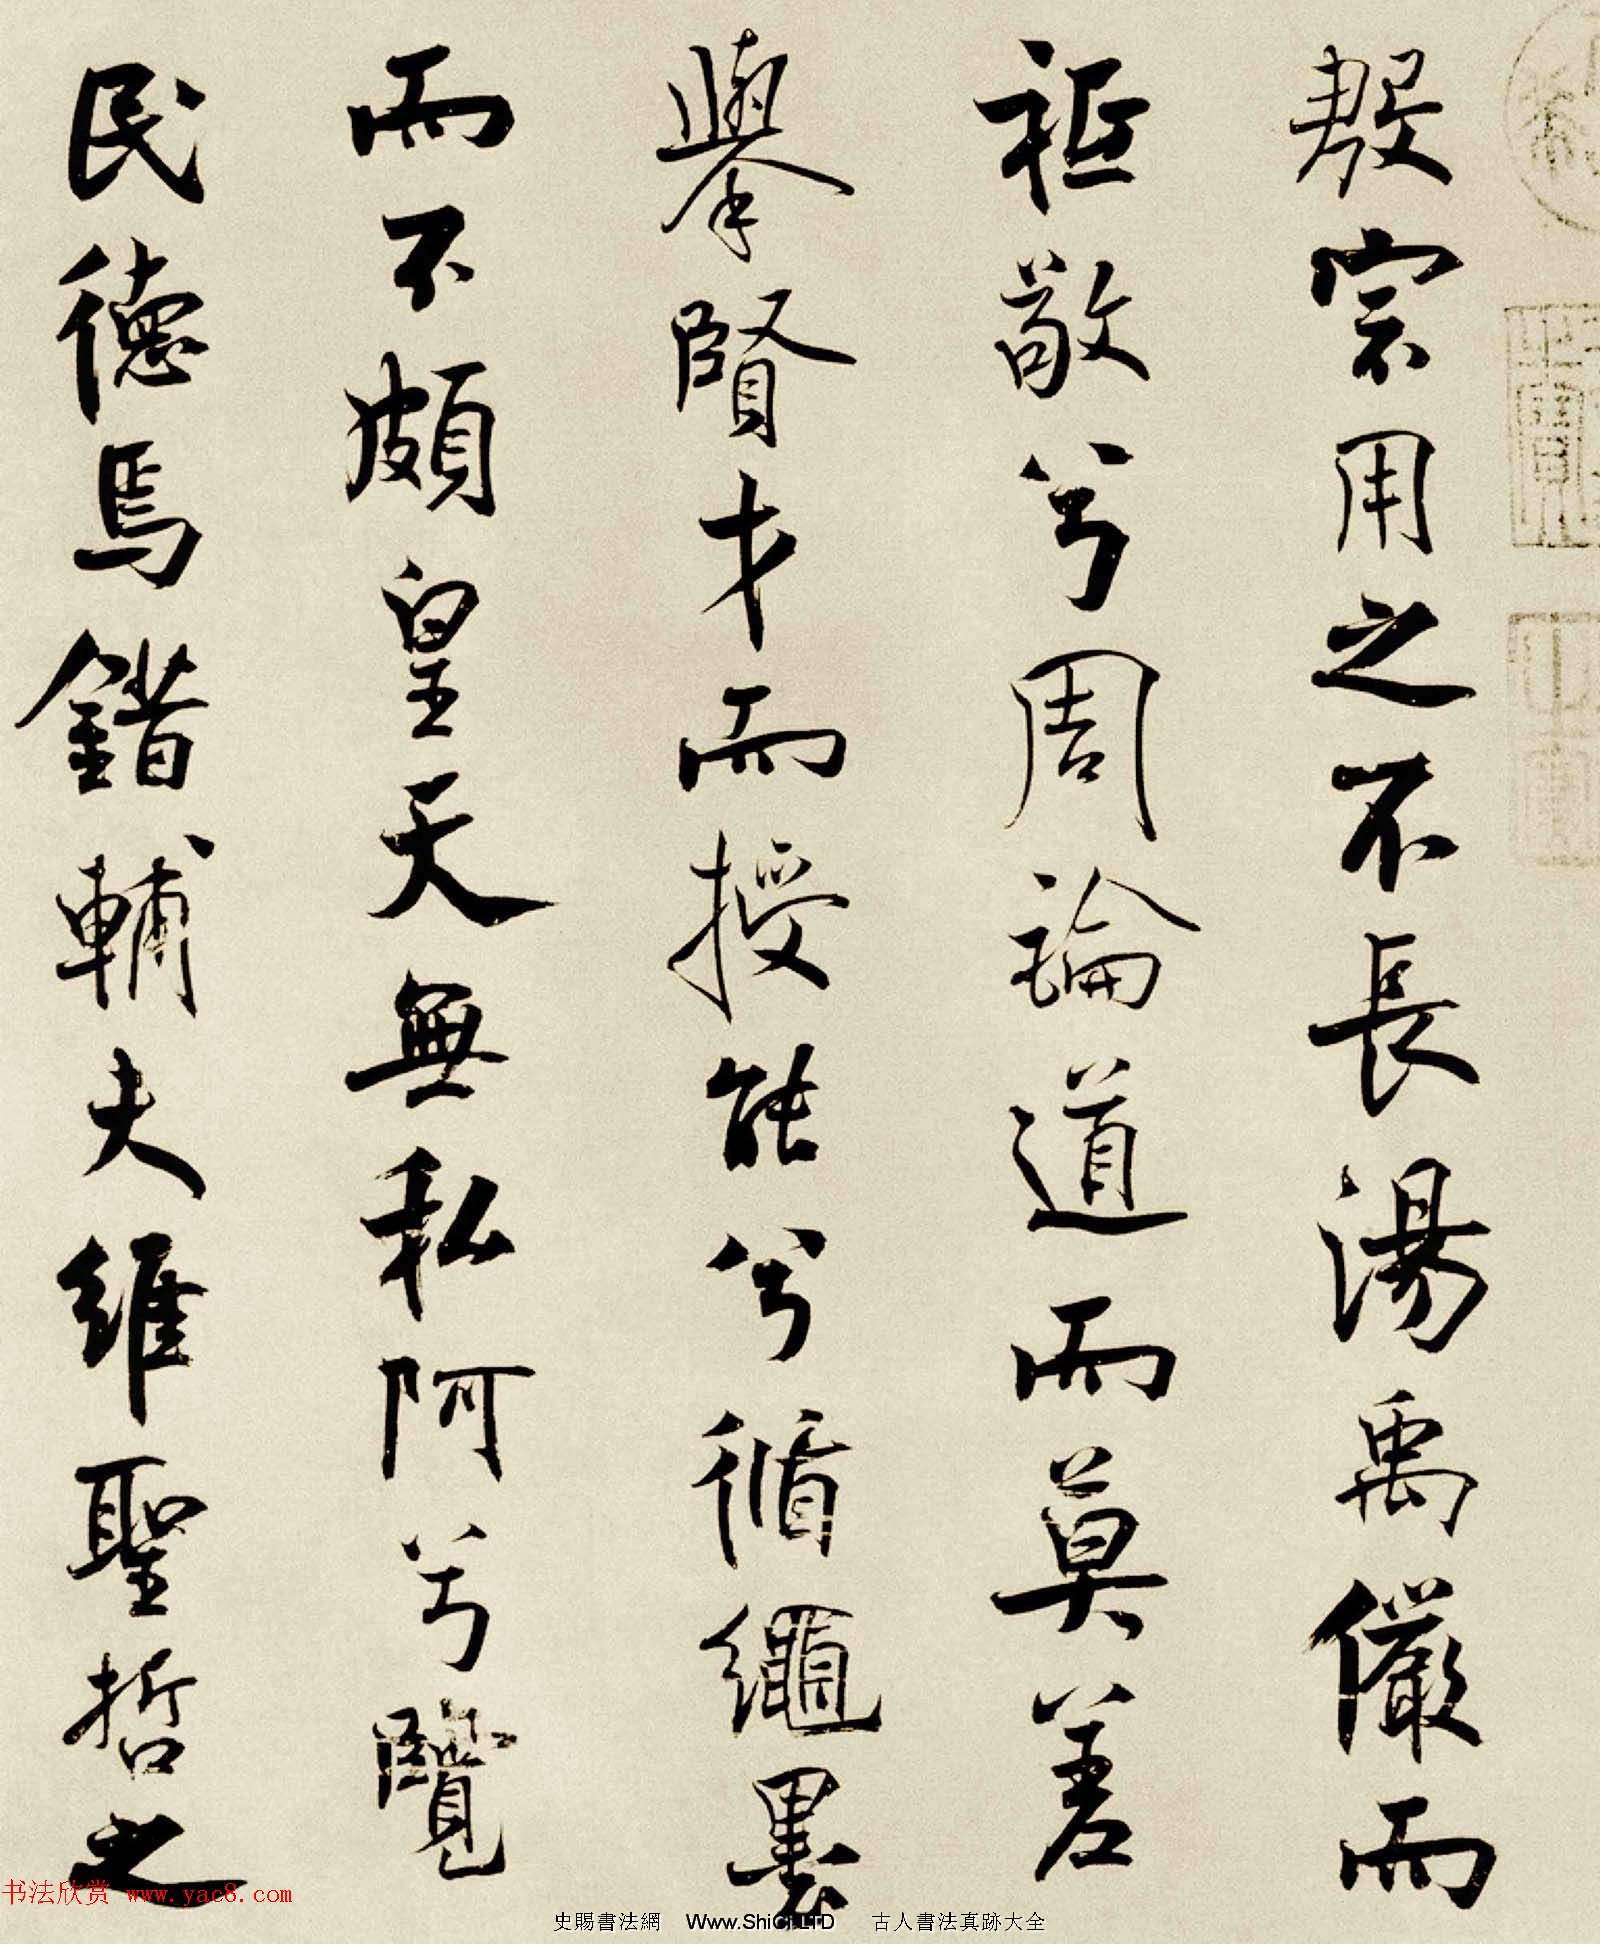 殷宗用之不長湯禹儼而
祗敬兮周論道而莫差
舉賢才而授能兮循繩墨
而不頗皇天無私阿兮覽
民德焉錯輔夫維聖哲之
书法欣赏 www.yac8.com
史賜書法網 Www.ShiCi.LTD 古人書法真跡大全